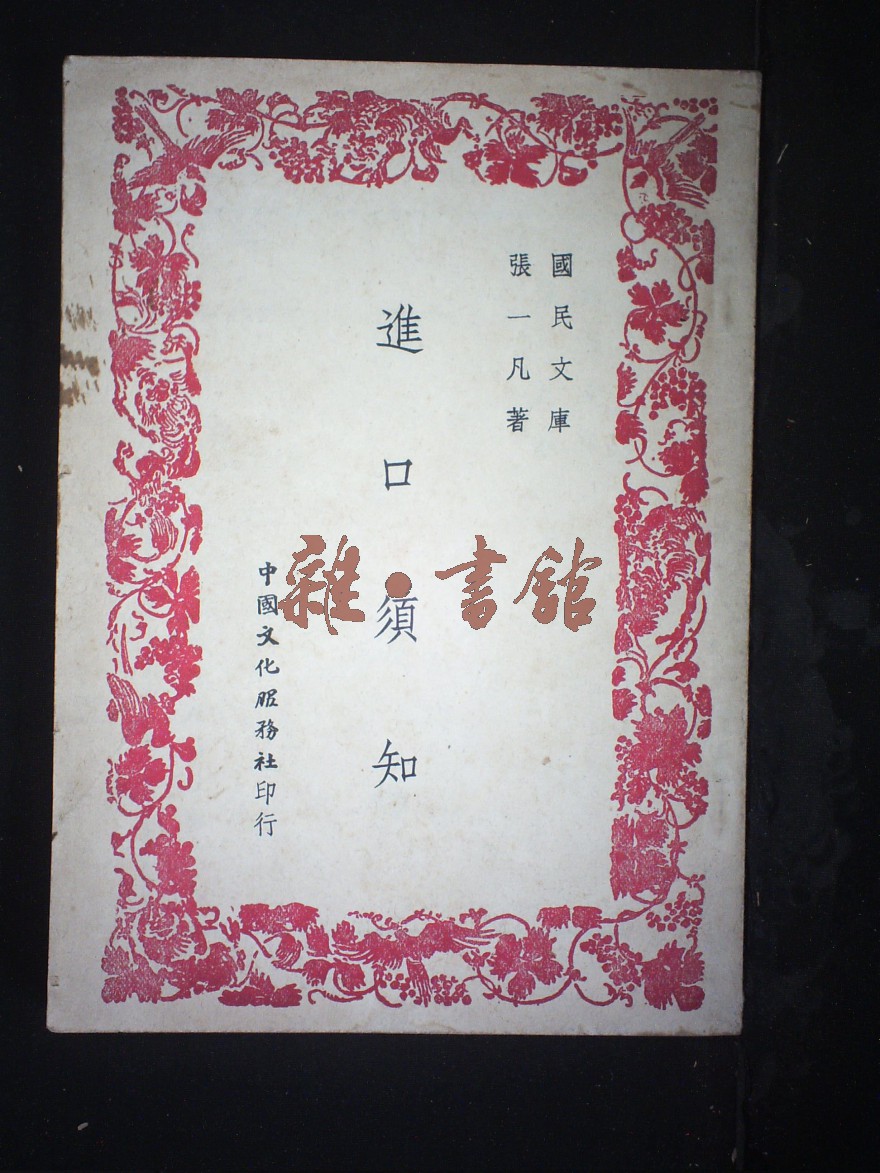 國民文庫
張一凡著
進口須知
中國文化服務社印行
雜·書館